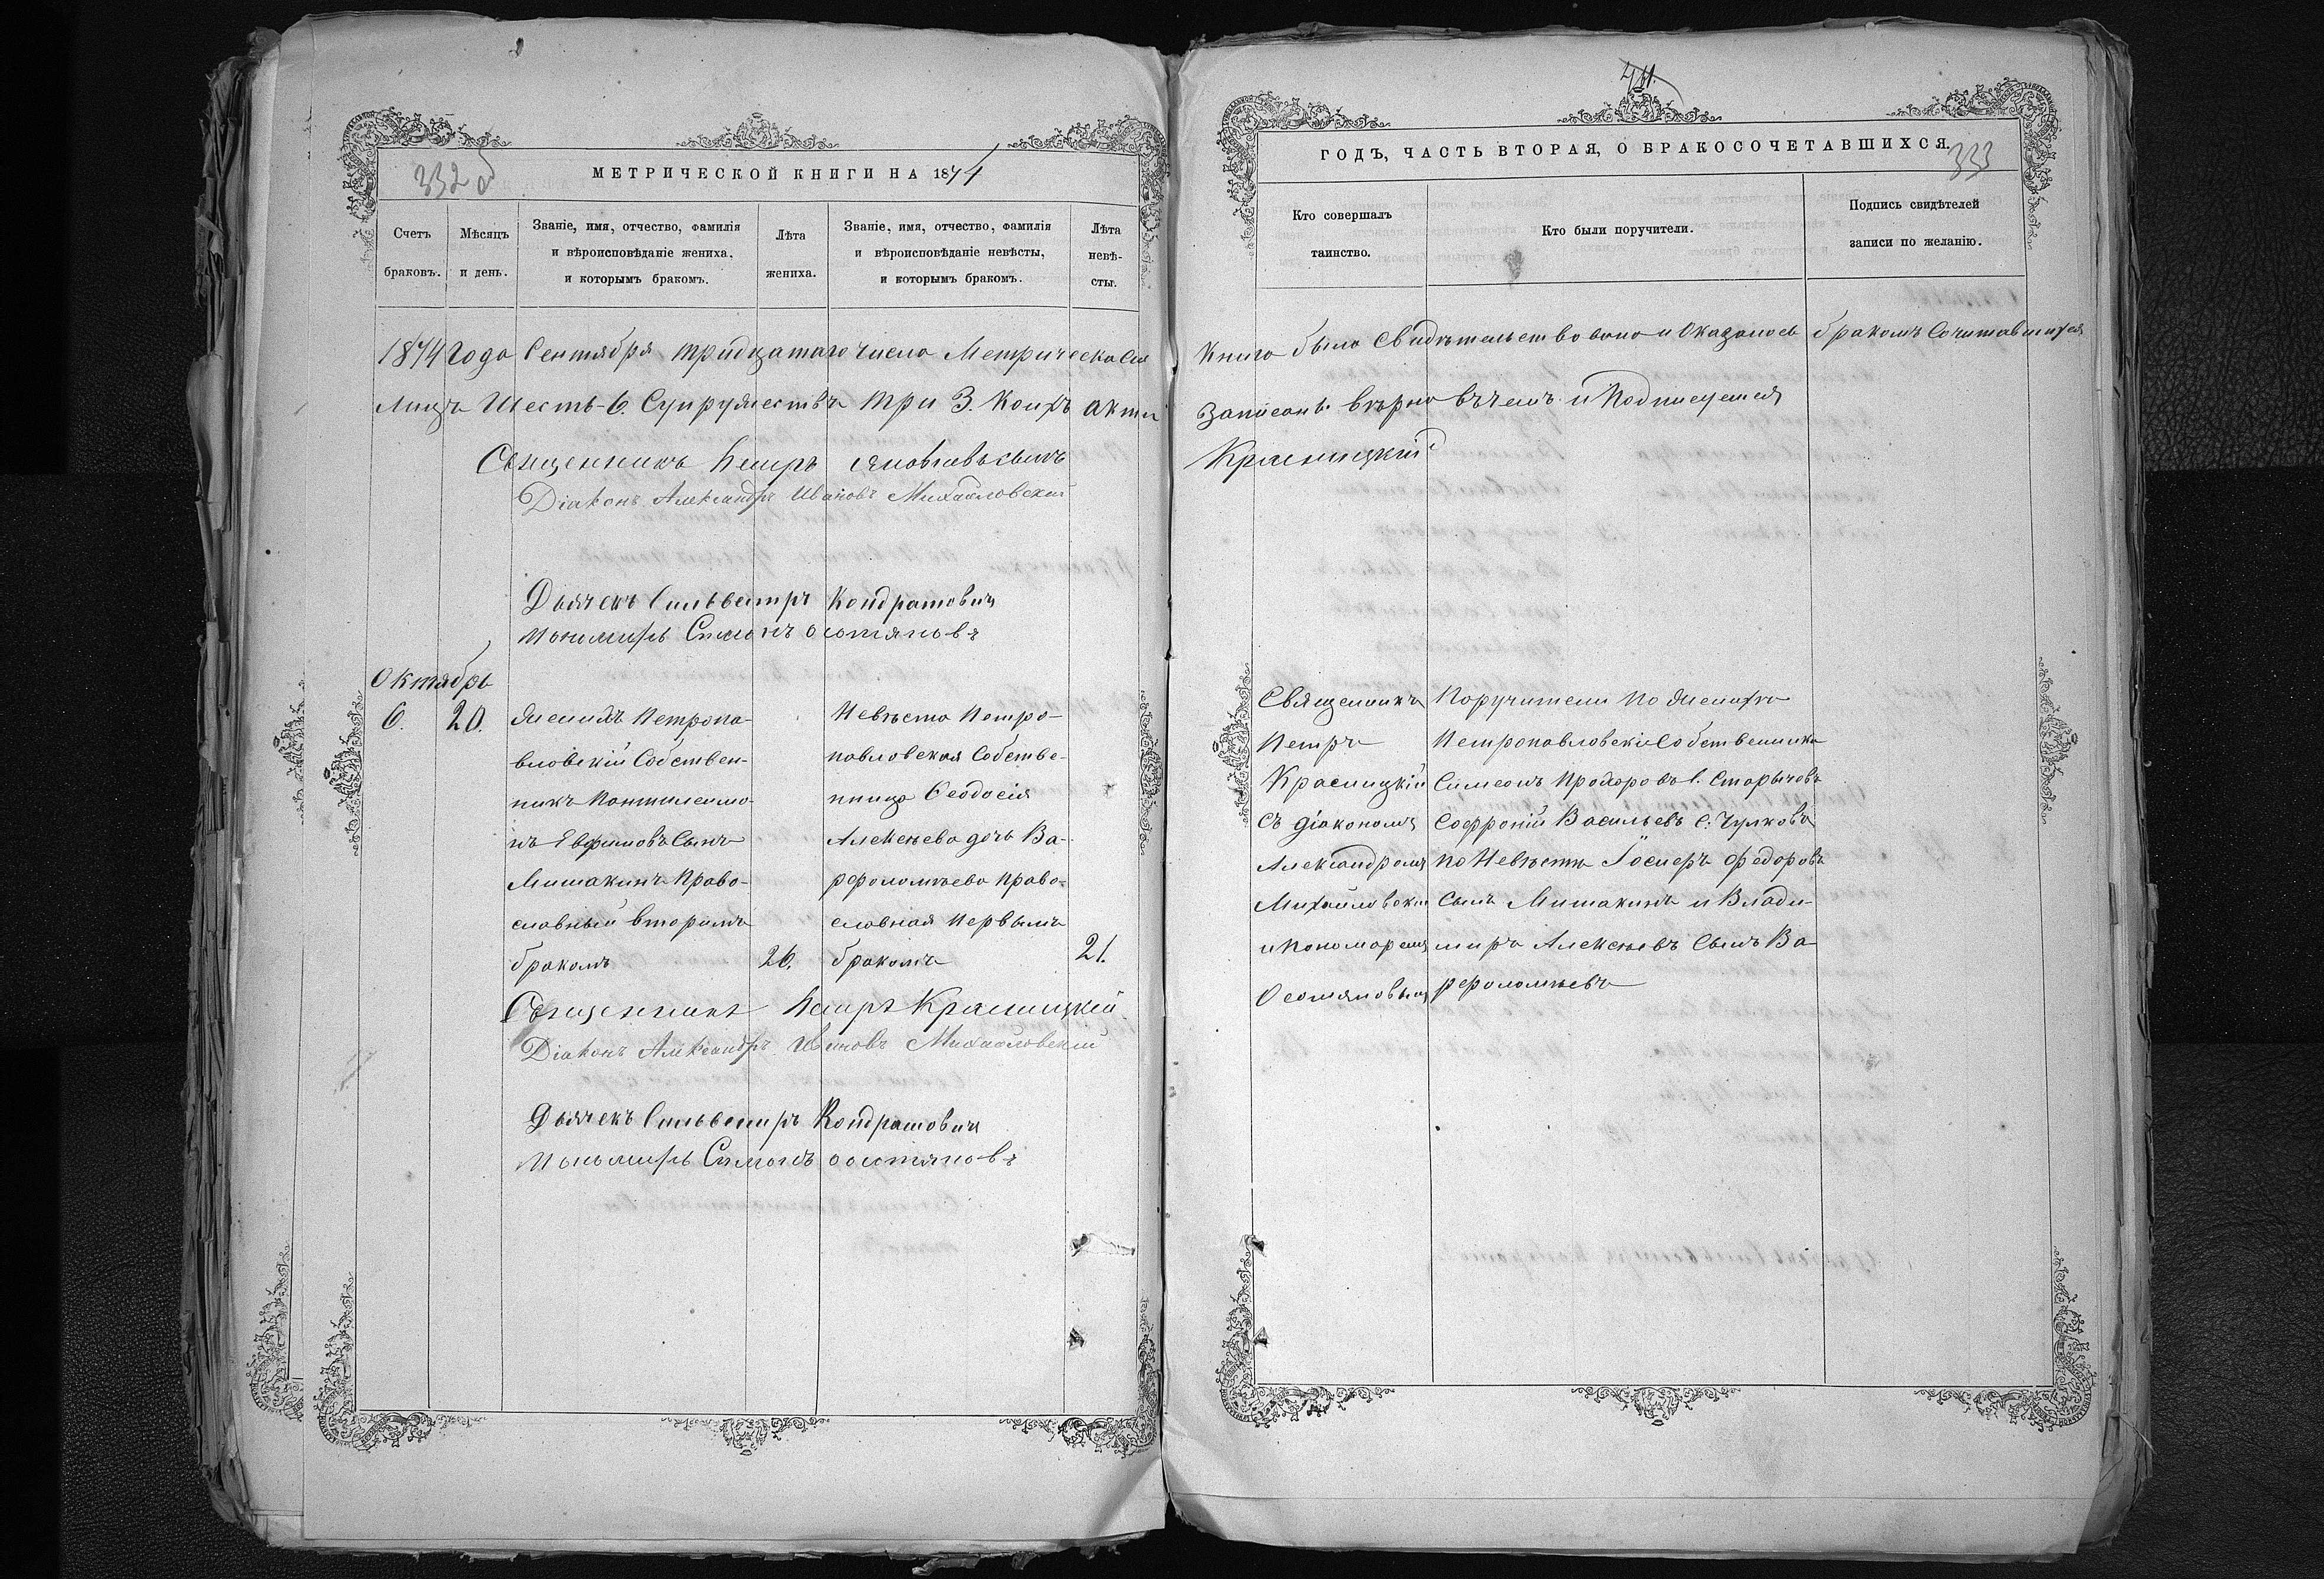 332 об
МЕТРИЧЕСКОЙ КНИГИ НА 1874
Счетъ браковъ.
Мѣсяцъ и день.
Званіе, имя, отчество, фамилія
и вѣроисповѣданіе жениха,
и которымъ бракомъ.
Лѣта
жениха.
Званіе, имя, отчество, фамилія
и вѣроисповѣданіе невѣсты,
и которымъ бракомъ.
Лѣта
невѣ-
сты.
1874 Года Сентября тридцатаго числа Метрическа Сія
лицъ Шесть-6. Супружествъ три 3. Коихъ акты
Священникъ Петръ Яковлевъ сынъ
Діаконъ Александръ Ивановъ Михайловскій
Дьячекъ Сильвестръ Кондратовичъ
Пономарь Симонъ
Октябрь
6. 20.
Женихъ Петропа-
вловскій Собствен-
никъ Пантилеимо-
нъ Евфимовъ Сынъ
Мишакинъ Право-
славный вторымъ
бракомъ
26.
Невѣста Петро-
павловская Собстве-
нница Ѳеодосія
Алексѣева дочь Ва-
рфоломѣева Право-
славная Первымъ
бракомъ
21.
Священникъ Петръ Красицкій
Діаконъ Александръ Ивановъ Михайловскій
Дьячекъ Сильвестръ Кондратовичъ
Пономарь Симонъ
461.
ГОДЪ, ЧАСТЬ ВТОРАЯ, О БРАКОСОЧЕТАВШИХСЯ.
333
Кто совершалъ
таинство.
Кто были поручители.
Подпись свидѣтелей
записи по желанію.
Книга была Свидѣтельствована и Оказалось бракомъ Сочитавшихся
Записаны вѣрно въ чемъ и Подписуемся
Красицкій
Священникъ
Петръ
Красицкій
Съ діакономъ
Александромъ
Михайловскимъ
и Пономаремъ
Поручители по Женихѣ
Петропавловскіе Собственники
Симеонъ Прохоровъ С. Старычовъ
Софроній Васильевъ С. Чулковъ
по Невѣстѣ Іосифъ Федоровъ
Сынъ Мишакинъ и Влади-
миръ Алексѣевъ Сынъ Ва-
рфоломѣевъ